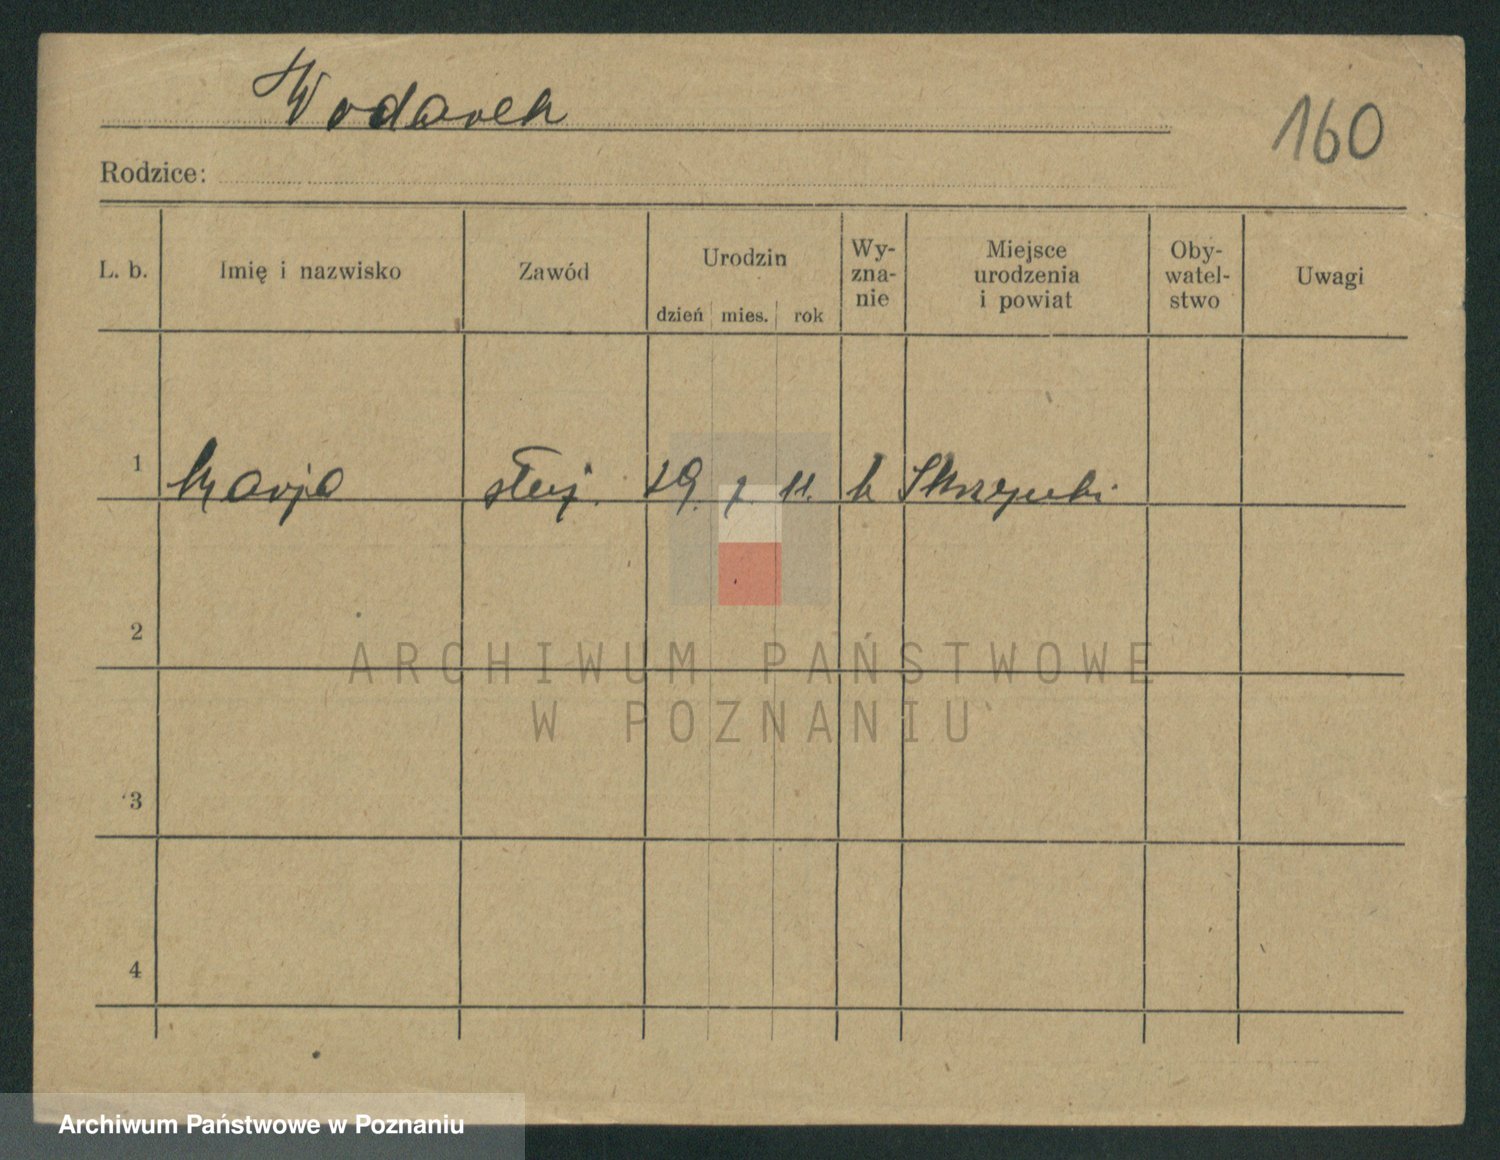 Wodarek
160
Rodzice:
L. b. Imię i nazwisko Zawód Urodzin dzień mies. rok Wy-
zna-
nie Miejsce
urodzenia
i powiat Oby-
watel-
stwo Uwagi
1 Marja służ. 29. 7. 11. k
2
3
4
ARCHIWUM PAŃSTWOWE
W POZNANIU
Archiwum Państwowe w Poznaniu